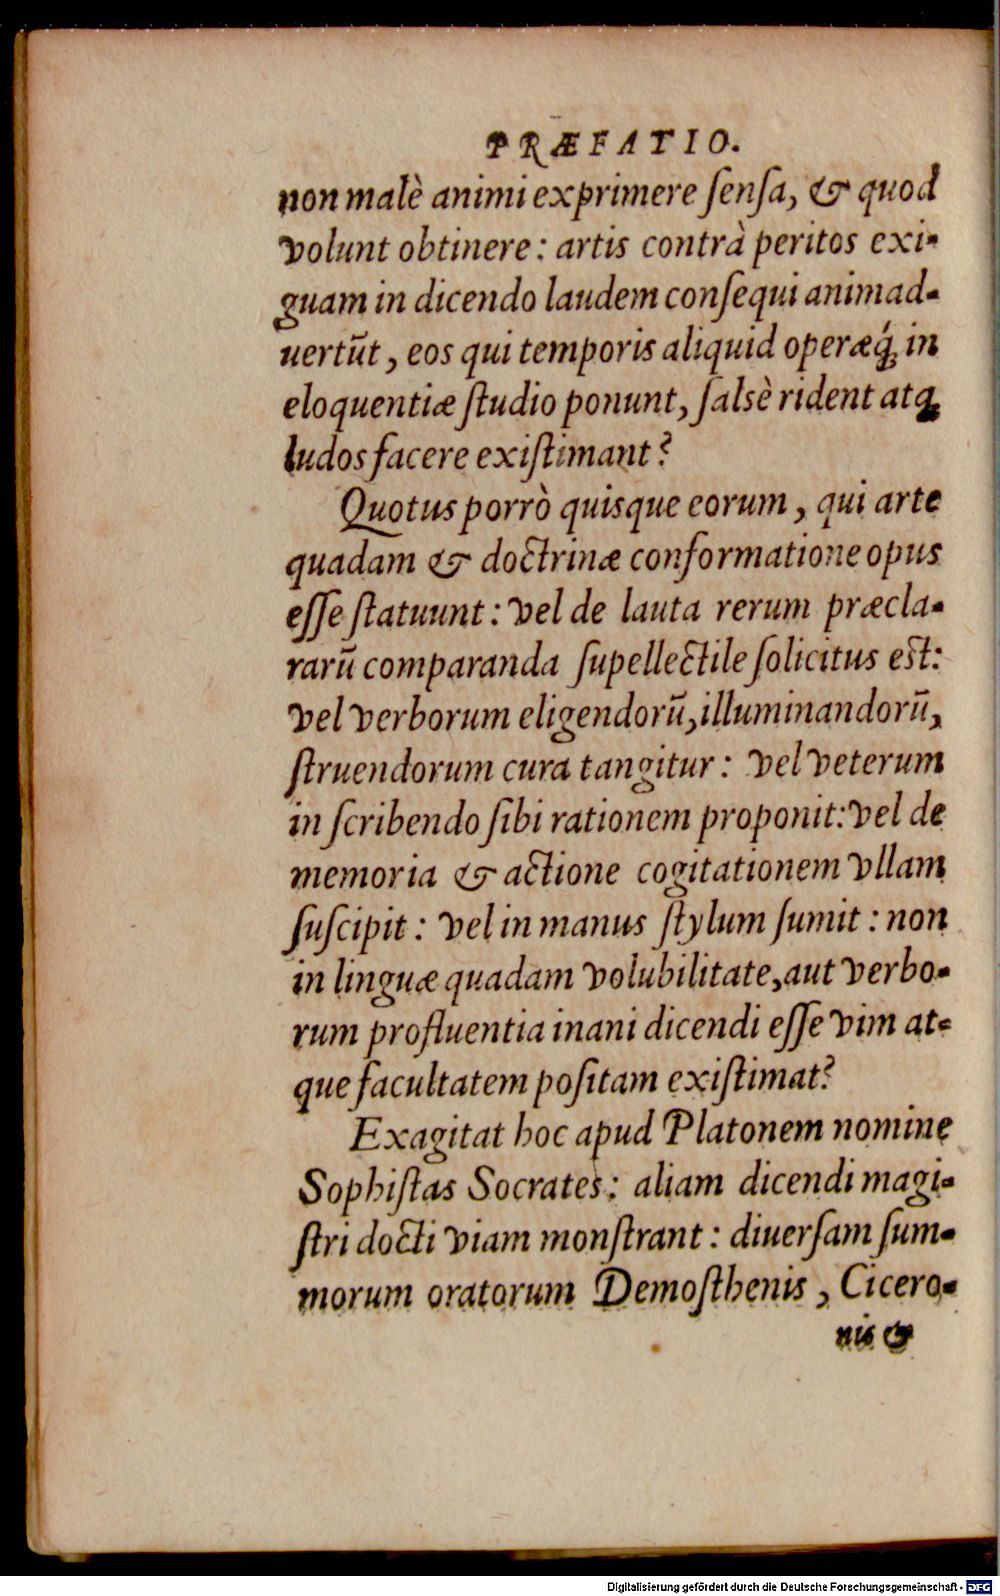 PRÆFATIO.
non malè animi exprimere ſenſa, & quod
volunt obtinere: artis contrà peritos exi-
guam in dicendo laudem conſequi animad-
uertũt, eos qui temporis aliquid operæq́; in
eloquentiæ ſtudio ponunt, ſalsè rident atq;
ludos facere exiſtimant?
Quotus porrò quisque eorum, qui arte
quadam & doctrinæ conformatione opus
eſſe ſtatuunt: vel de lauta rerum præcla-
rarũ comparanda ſupellectile ſolicitus est:
vel verborum eligendorũ, illuminandorũ,
ſtruendorum cura tangitur: vel veterum
in ſcribendo ſibi rationem proponit: vel de
memoria & actione cogitationem vllam
ſuſcipit: vel in manus ſtylum ſumit: non
in linguæ quadam volubilitate, aut verbo-
rum profluentia inani dicendi eſſe vim at-
que facultatem poſitam exiſtimat?
Exagitat hoc apud Platonem nomine
Sophiſtas Socrates: aliam dicendi magi-
ſtri docti viam monſtrant: diuerſam ſum-
morum oratorum Demoſthenis, Cicero-
nis &
Digitalisierung gefördert durch die Deutsche Forschungsgemeinschaft - DFG